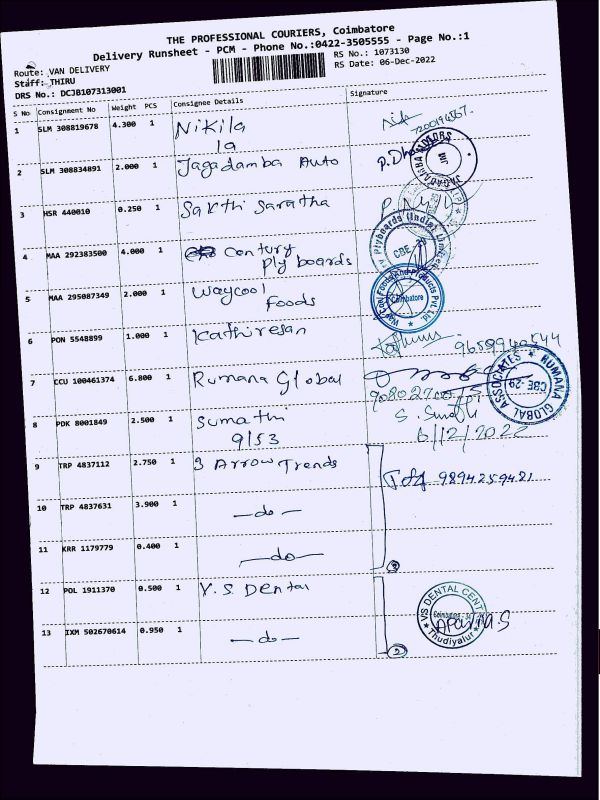 THE PROFESSIONAL COURIERS, Coimbatore
Delivery Runsheet - PCM - Phone No.:0422-3505555 - Page No.:1
Route: VAN DELIVERY
RS No.: 1073130
Staff: THIRU
RS Date: 06-Dec-2022
DRS No.: DCJB107313001
S No Consignment No Weight PCS Consignee Details Signature
1 SLM 308819678 4.300 1 Nikila
19
2 SLM 308834891 2.000 1 Jagadamba Auto
JAGADAMBA MOTORS
3 HSR 440010 0.250 1 Sakthi Saratha
4 MAA 292383500 4.000 1 Century
Ply boards
Plyboards (India) Limited
CBE
5 MAA 295087349 2.000 1 Waycool
Foods
WayCool Foods And Products Pvt. Ltd
Coimbatore
6 PON 5548899 1.000 1 Kathiresan
7 CCU 100461374 6.800 1 Rumana Global
RUMANA GLOBAL ASSOCIATES
CBE -29
8 PDK 8001849 2.500 1 Sumathi
9/53
6/12/2022
9 TRP 4837112 2.750 1 3 Arrow Trends
9894259421
10 TRP 4837631 3.900 1 -do-
11 KRR 1179779 0.400 1 -do-
3
12 POL 1911370 0.500 1 V.S. Dental
13 IXM 502670614 0.950 1 -do-
2
VIS DENTAL CENT
Thudiyalur
Aparna.S